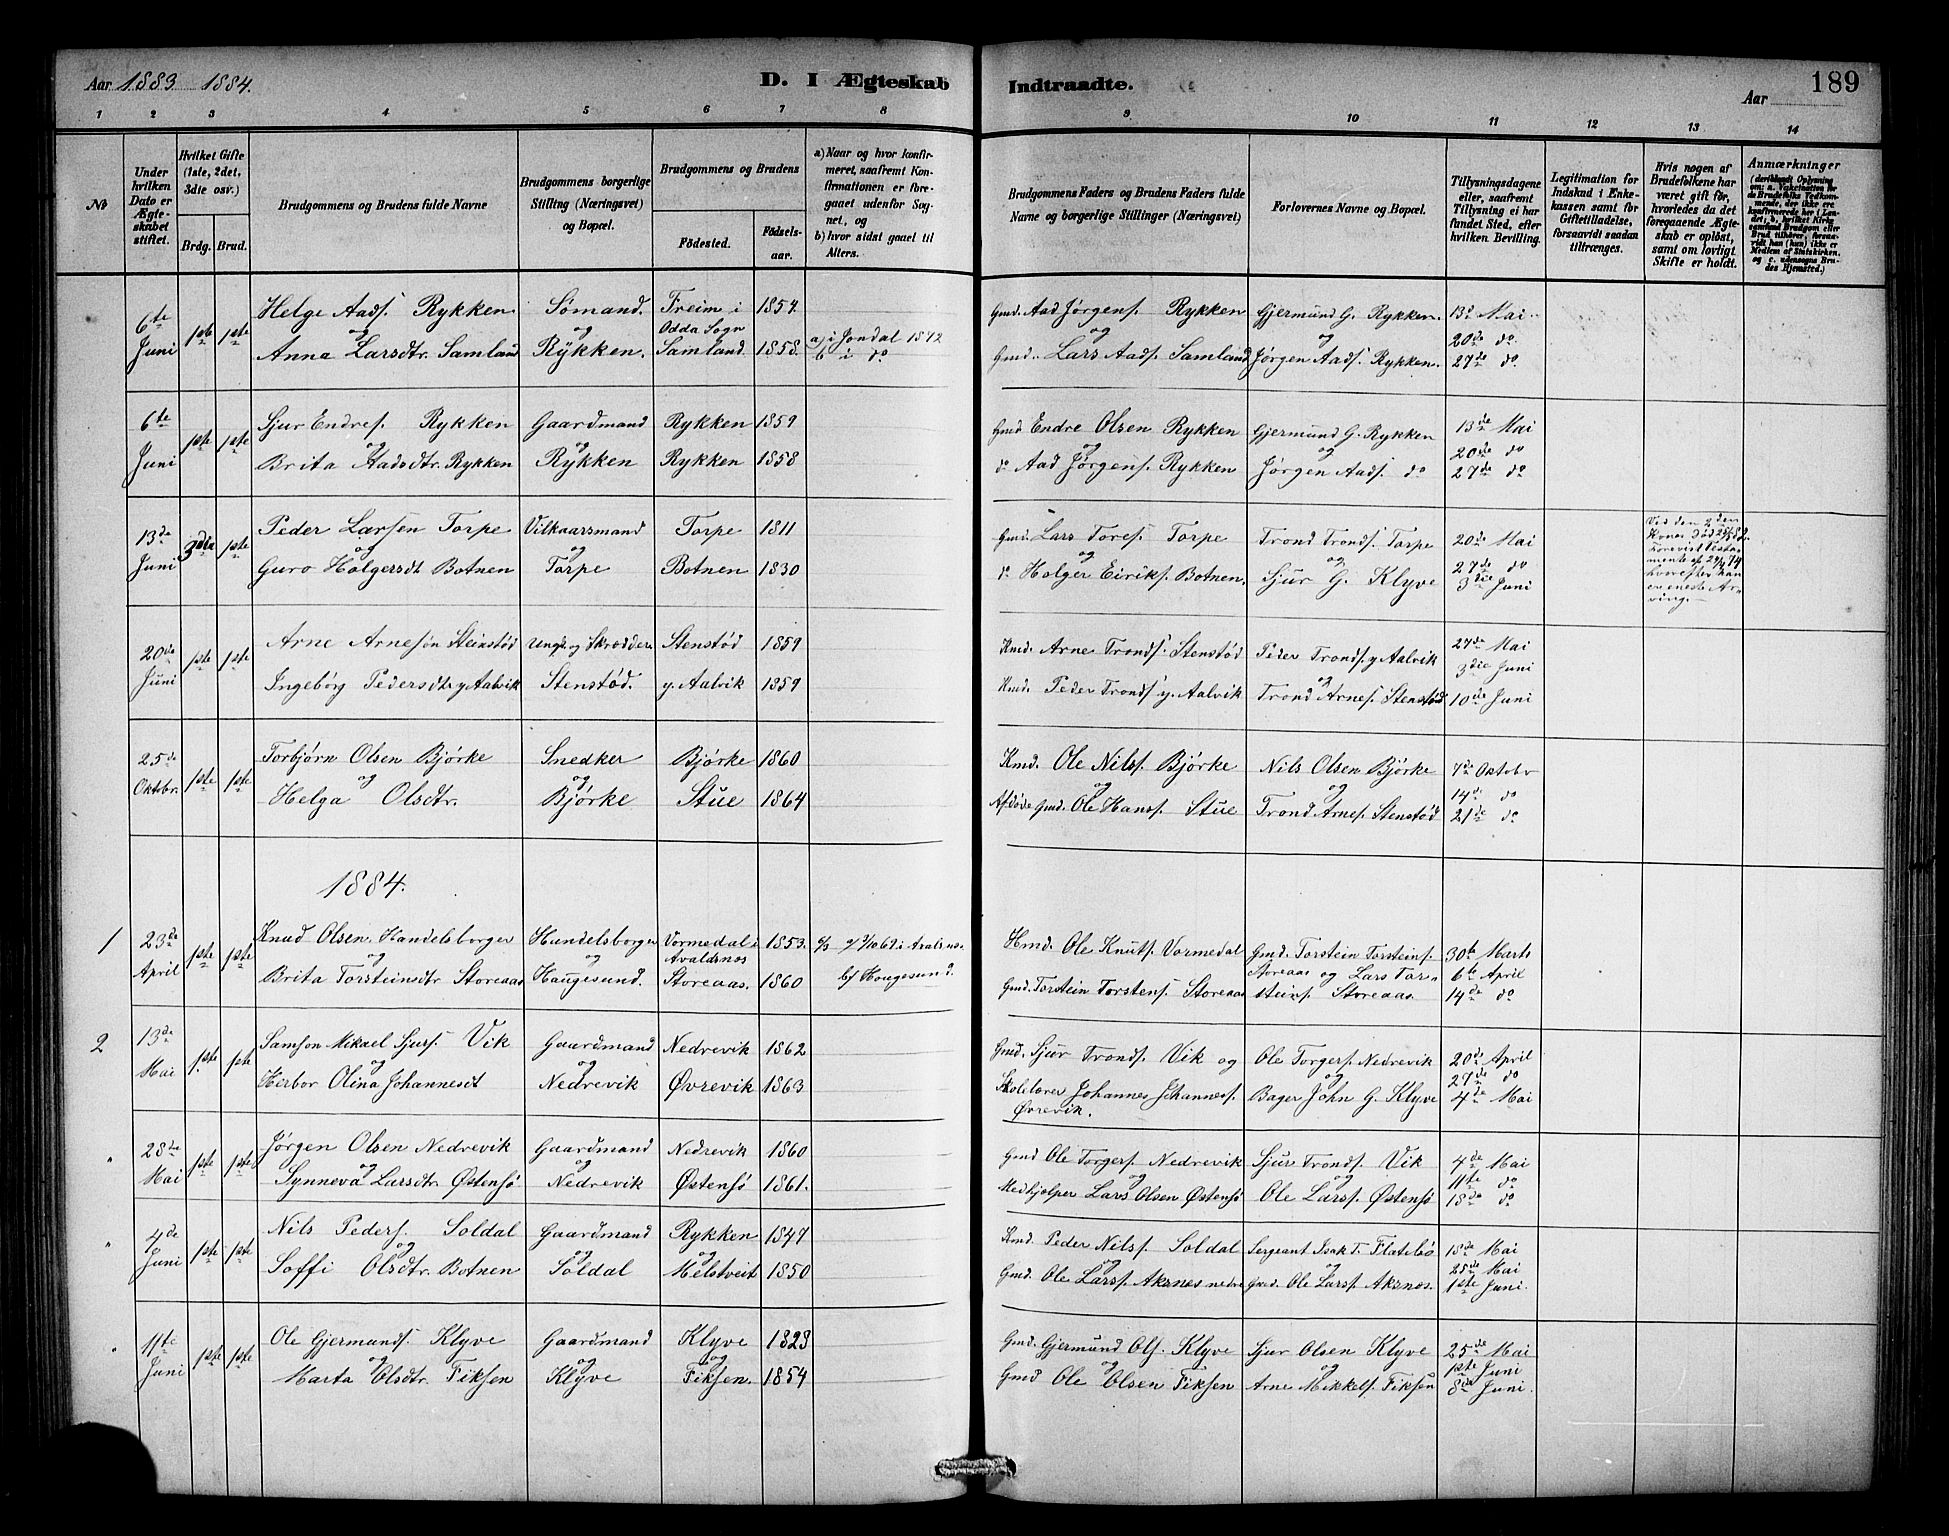 Aar 1883 1884.
D. I Ægteskab Indtraadte.
Aar
189
1 2 3 4 5 6 7 8 9 10 11 12 13 14
No
Under hvilken Dato er Ægteskabet stiftet.
Hvilket Gifte (1ste, 2det, 3die osv.)
Brdg. Brud.
Brudgommens og Brudens fulde Navne
Brudgommens borgerlige Stilling (Næringsvei) og Bopæl.
Brudgommens og Brudens
Födested. Födselsaar.
a) Naar og hvor konfirmeret, saafremt Konfirmationen er foregaaet udenfor Sognet, og
b) hvor sidst gaaet til Alters.
Brudgommens Faders og Brudens Faders fulde Navne og borgerlige Stillinger (Næringsvei)
Forlovernes Navne og Bopæl.
Tillysningsdagene eller, saafremt Tillysning ei har fundet Sted, efter hvilken Bevilling.
Legitimation for Indskud i Enkekassen samt for Giftetilladelse, forsaavidt saadan tiltrænges.
Hvis nogen af Brudefolkene har været gift för, hvorledes da det foregaaende Ægteskab er oplöst, samt om lovligt Skifte er holdt.
Anmærkninger
6te Juni 1ste 1ste Helge Aads. Rykken og Anna Larsdtr. Samland
Sømand. og Rykken.
Freim i Odda Sogn 1854.
Samland 1858.
a) i Jondal 1872
b i do
Gmd. Aad Jørgens. Rykken og
Gmd. Lars Aads. Samland
Gjermund G. Rykken.
Jørgen Aads. Rykken.
13de Mai
20de do
27de do
6te Juni 1ste 1ste Sjur Endres. Rykken og Brita Aadsdtr. Rykken
Gaardmand og Rykken
Rykken 1859
Rykken 1858
Gmd Endre Olsen Rykken og
do Aad Jørgens. Rykken
Gjermund G. Rykken og
Jørgen Aads. do
13de Mai
20de do
27de do
13de Juni 3die 1ste Peder Larsen Torpe og Guro Holgersdt Botnen
Vilkaarsmand og Torpe
Torpe 1811
Botnen 1830
Gmd. Lars Tores. Torpe og
do Holger Eiriks. Botnen.
Trond Tronds. Torpe og
Sjur G. Klyve
20de Mai
27de do
3die Juni
Ved den 2den Kones Død
forevist Testamente
hvorefter han er eneste Arving.
20de Juni 1ste 1ste Arne Arnesøn Steinstød
Ingebörg Pedersdtr y. Aalvik
Ungk. og Skrædder
Stenstød.
Stenstød 1859
y. Aalvik 1859
Kmd. Arne Tronds. Stenstød
Kmd. Peder Tronds. y. Aalvik
Peder Tronds. y Aalvik og
Trond Arnes. Stenstød
27de Mai
3die Juni
10de Juni
25de Oktbr. 1ste 1ste Torbjørn Olsen Bjørke og Helga Olsdtr.
Snedker og Bjørke
Bjørke 1860
Stue 1864
Kmd. Ole Nilss. Bjørke og
Afdøde Gmd. Ole Hanss. Stue
Nils Olsen Bjørke og
Trond Arnes. Stenstød
7de Oktober
14de do
21de do
1884.
1 23de April 1ste 1ste Knud Olsen Handelsborger og Brita Torsteinsdtr Storeaas
Handelsborger og Haugesund.
Vormedal i Avaldsnes 1853.
Storeaas. 1860
b/ Haugesund.
Hmd. Ole Knuts. Vormedal
Gmd. Torstein Torstens. Storeaas
Gmd. Torstein Torsteins. Storeaas og Lars Torsteins. Storeaas
30te Marts
6te April
14de do
2 13de Mai 1ste 1ste Samson Mikael Sjurs. Vik og Herbor Olina Johannesdt
Gaardmand og Nedrevik
Nedrevik 1862
Øvrevik 1863
Gmd. Sjur Tronds. Vik og
Skolelærer Johannes Johanness. Øvrevik.
Ole Torgers. Nedrevik og
Bager John G. Klyve
20de April
27de do
4de Mai
" 28de Mai 1ste 1ste Jørgen Olsen Nedrevik og Synneva Larsdtr. Østensø
Gaardmand og Nedrevik
Nedrevik 1860
Østensø 1861.
Gmd Ole Torgers. Nedrevik og
Medhjelper Lars Olsen Østensø
Sjur Tronds. Vik og
Ole Larss. Østensø
4de Mai
11te do
18de do
" 4de Juni 1ste 1ste Nils Peders. Soldal og Soffi Olsdtr. Botnen
Gaardmand og Soldal
Rykken og 1847
Melstveit 1850
Kmd. Peder Nilss. Soldal og
Gmd. Ole Larss. Aksnes nedre
Sergeant Isak T. Flatebø og
Gmd. Ole Larss. Aksnes.
18de Mai
25de Mai
1ste Juni.
" 11te Juni 1ste 1ste Ole Gjermunds. Klyve og Marta Olsdtr. Fiksen
Gaardmand og Klyve
Klyve og 1823
Fiksen. 1854
Gmd. Gjermund Ols. Klyve og
Gmd Ole Olsen Fiksen
Sjur Olsen Klyve og
Arne Mikkels. Fiksen
25de Mai
1ste Juni
8de Juni.